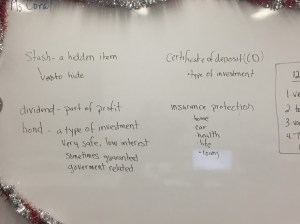 Ms Cora
Stash - a hidden item
verb to hide
dividend - part of profit
bond - a type of investment
very safe, low interest
sometimes guaranteed
goverment related
Certificate of deposit (CD)
-type of investment
insurance protection
home
car
health
life
-loans
12
1.
2.
3.
4.